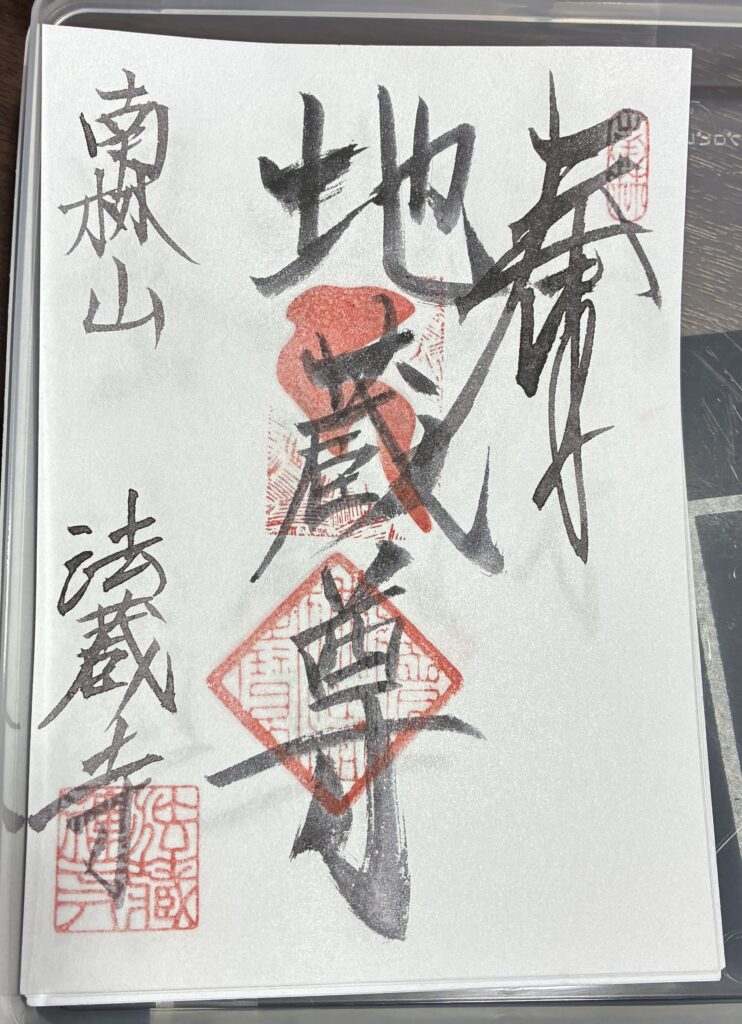 奉拝
地蔵尊
南林山 法蔵寺
法藏
禪寺